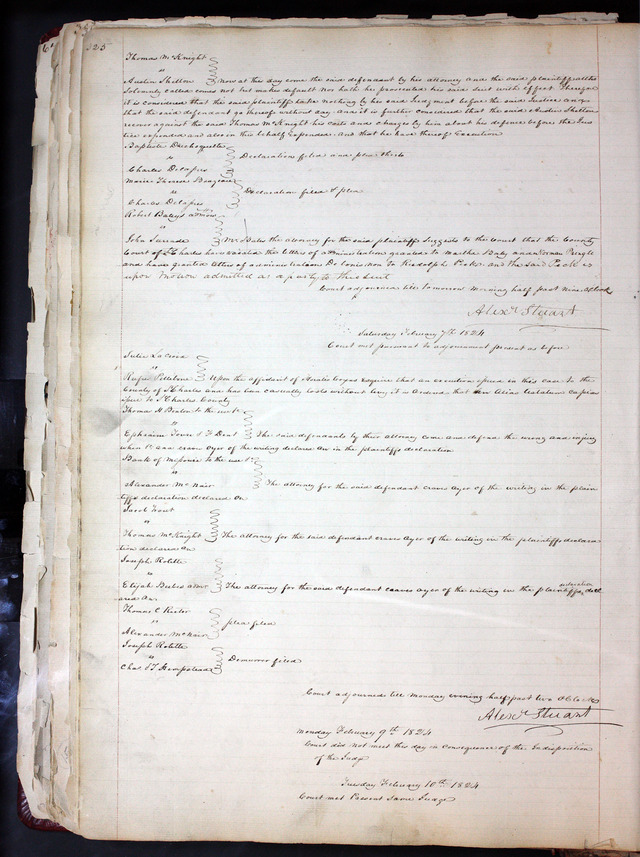 325
Thomas McKnight
"
Austin Shelton } now at this day come the said defendant by his attorney and the said plaintiff altho
Solemnly called comes not but makes default nor hath he prosecuted his said suit with effect Therefore
it is considered that the said plaintiff take nothing by his said Judgment before the said Justice and
that the said defendant go thereof without day and it is further considered that the said Austin Shelton
recover against the said Thomas McKnight his costs and charges by him about his defence before the Jus
tice expended and also in this behalf expended and that he have thereof Execution
Baptiste Duchoquette
"
Charles Delassus } Declaration filed and plea thereto
Marie Therese
"
Charles Delassus } Declaration filed & plea
Robert Baleys admors
"
John } Mr Bates the attorney for the said plaintiffs Suggests to this court that the County
Court of St Charles have revoked the letters of administration granted to Martha Baly and
and have granted letters of administration De bonis non to Rudolph and the said
upon motion admitted as a party to this suit
Court adjourned till tomorrow morning half past nine oClock
Alexr Stuart
Saturday February 7th 1824
Court met pursuant to adjournment present as before
Julie La Croix
"
Rufus Pettibone } Upon the affidavit of Horatio Cozens Esquire that an execution issued in this case to the
County of St Charles and has been casually lost without levy it is ordered that an Alias Testatum capias
issue to St Charles County
Thomas H Benton to the use &c
"
Ephraim Town & F Dent } The said defendants by their attorney come and defend the wrong and injury
when &c and crave Oyer of the writing declared on in the plaintiffs declaration
Bank of Missouri to the use &c
"
Alexander McNair } The attorney for the said defendant craves Oyer of the writing in the plain
tiffs declaration declared on
Jacob
"
Thomas McKnight } The attorney for the said defendant craves Oyer of the writing in the plaintiffs declara
tion declared on
Joseph Rolette
"
Elijah Beebes admr } The attorney for the said defendant craves Oyer of the writing in the plaintiffs declaration decl
ared on
Thomas C Rector
"
Alexander McNair } plea filed
Joseph Rolette
"
Chas & T Hempstead } Demurrer filed
Court adjourned till Monday evening half past two oClock
Alexr Stuart
Monday February 9th 1824
Court did not meet this day in consequence of the Indisposition
of the Judge
Tuesday February 10th 1824
Court met Present Same Judge